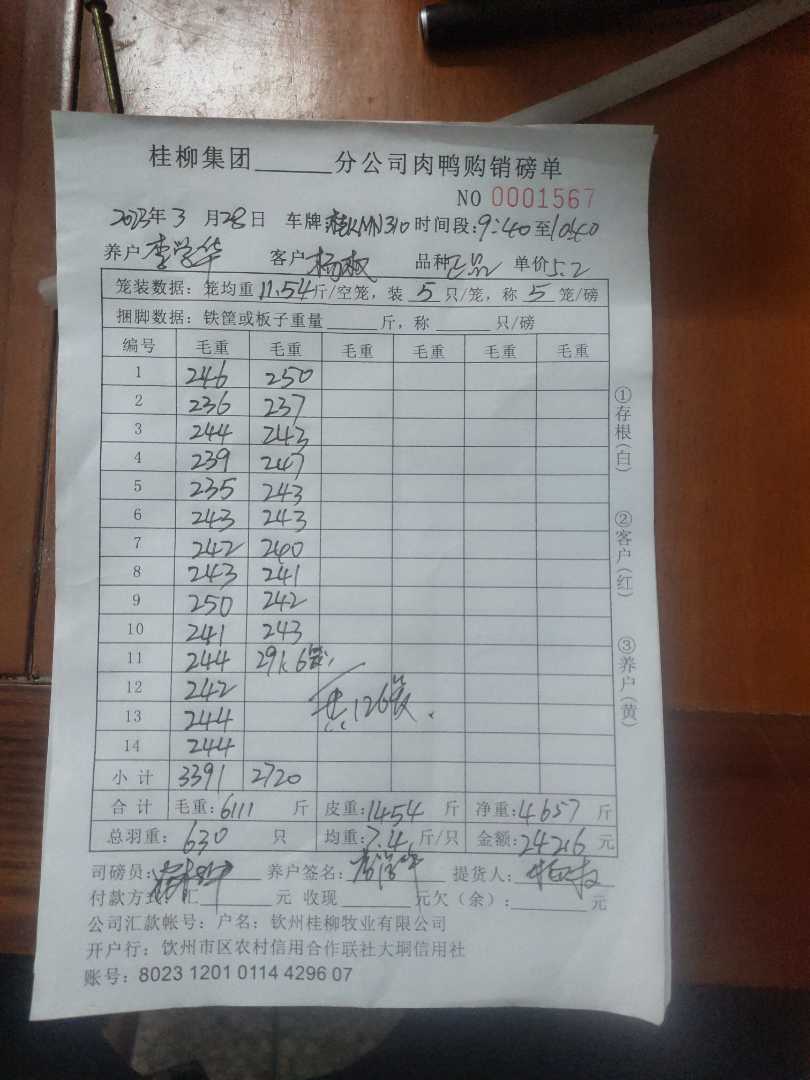 桂柳集团______分公司肉鸭购销磅单
NO 0001567
2023年3月28日 车牌桂KMN310时间段:9:40至10:40
养户李学华 客户杨权 品种正品 单价5.2
笼装数据：笼均重11.54斤/空笼，装5只/笼，称5笼/磅
捆脚数据：铁筐或板子重量______斤，称______只/磅
编号 毛重 毛重 毛重 毛重 毛重 毛重
1 246 250
2 236 237
3 244 243
4 239 247
5 235 243
6 243 243
7 242 240
8 243 241
9 250 242
10 241 243
11 244 291.6笼
12 242
共126笼.
13 244
14 244
小计 3391 2720
合计 毛重:6111斤 皮重:1454斤 净重:4657斤
总羽重：630只 均重:7.4斤/只 金额:24216元
司磅员: 养户签名: 提货人:
付款方式：汇______元 收现______元欠（余）:______元
公司汇款帐号：户名：钦州桂柳牧业有限公司
开户行：钦州市区农村信用合作联社大垌信用社
账号：8023 1201 0114 4296 07
①存根(白)
②客户(红)
③养户(黄)